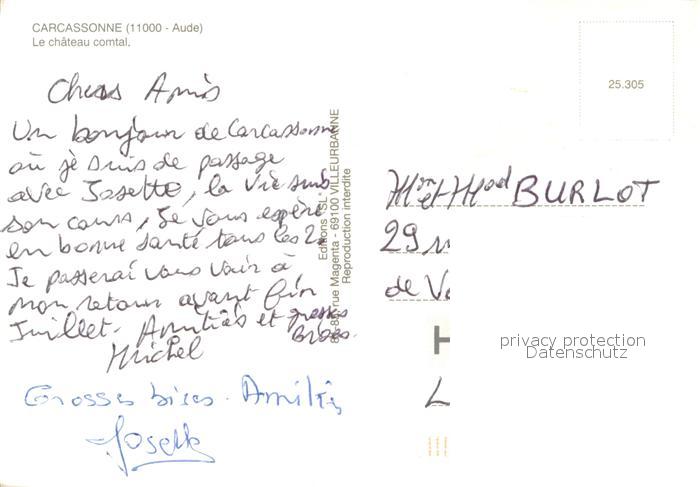 CARCASSONNE (11000 - Aude)
Le château comtal.
25.305
Chers Amis
Un bonjour de Carcassonne
où je suis de passage
avec Josette, la vie suit
son cours, Je vous espère
en bonne santé tous les 2.
Je passerai vous voir à
mon retour avant fin
Juillet. Amitiés et grosses
Bises.
Michel
Grosses bises. Amitiés
Josette
Editions "SL" VILLEURBANNE
rue Magenta - 69100 VILLEURBANNE
Reproduction interdite
et BURLOT
29
de
H
L
privacy protection
Datenschutz